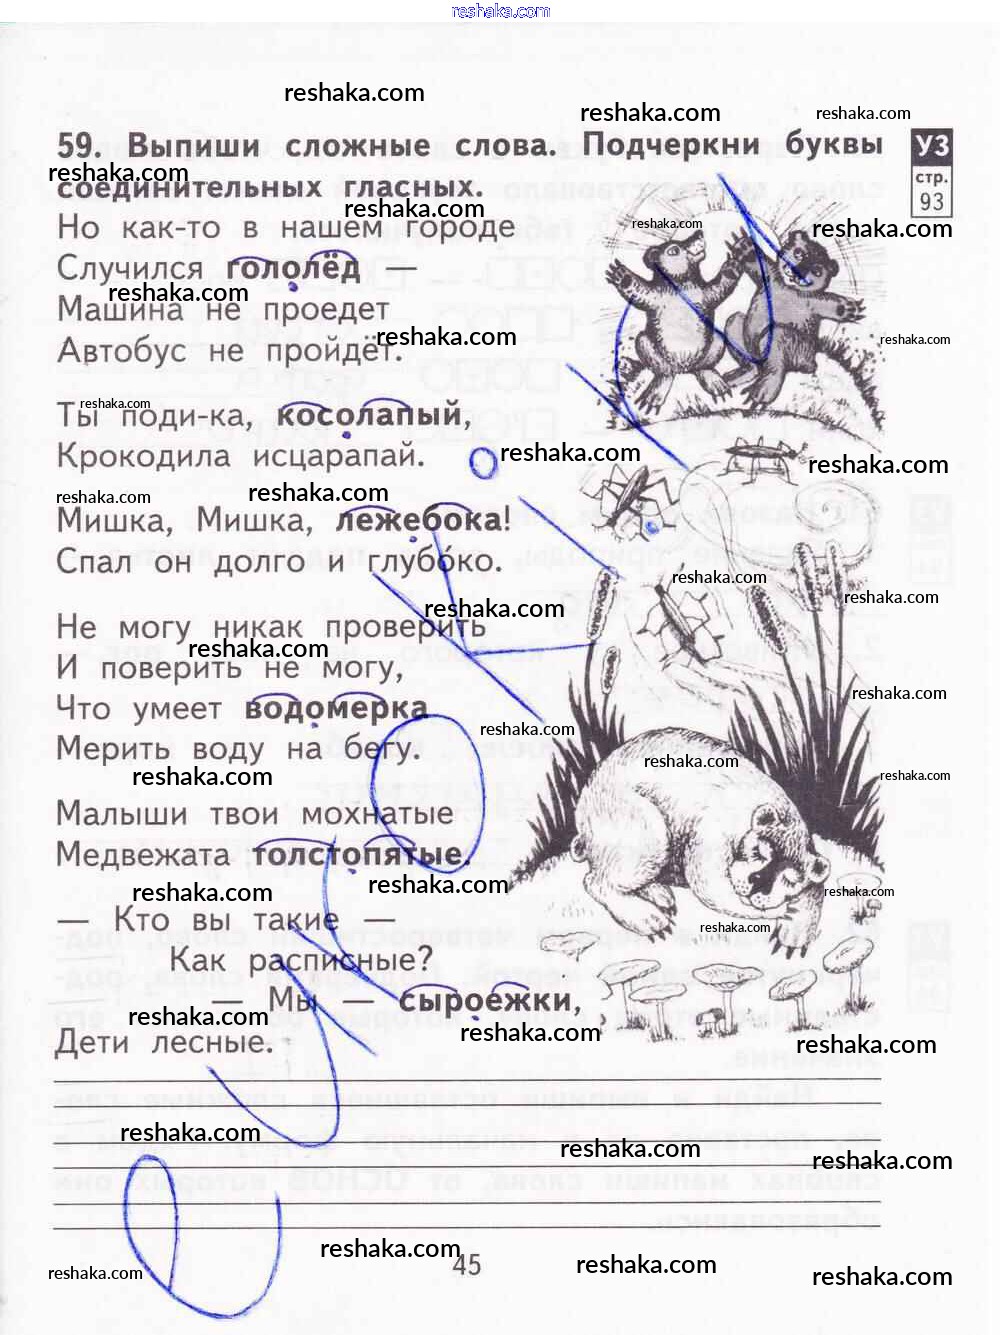 reshaka.com
reshaka.com
reshaka.com
reshaka.com
59. Выпиши сложные слова. Подчеркни буквы
соединительных гласных.
УЗ
стр.
93
reshaka.com
reshaka.com
reshaka.com
reshaka.com
Но как-то в нашем городе
Случился гололёд —
reshaka.com
Машина не проедет
reshaka.com
reshaka.com
Автобус не пройдёт.
reshaka.com
Ты поди-ка, косолапый,
Крокодила исцарапай.
reshaka.com
reshaka.com
reshaka.com
reshaka.com
Мишка, Мишка, лежебока!
Спал он долго и глубоко.
reshaka.com
reshaka.com
reshaka.com
Не могу никак проверить
reshaka.com
И поверить не могу,
reshaka.com
Что умеет водомерка
reshaka.com
Мерить воду на бегу.
reshaka.com
reshaka.com
reshaka.com
Малыши твои мохнатые
Медвежата толстопятые.
reshaka.com
reshaka.com
reshaka.com
— Кто вы такие —
reshaka.com
Как расписные?
— Мы — сыроежки,
reshaka.com
reshaka.com
Дети лесные.
reshaka.com
reshaka.com
reshaka.com
reshaka.com
reshaka.com
45
reshaka.com
reshaka.com
reshaka.com